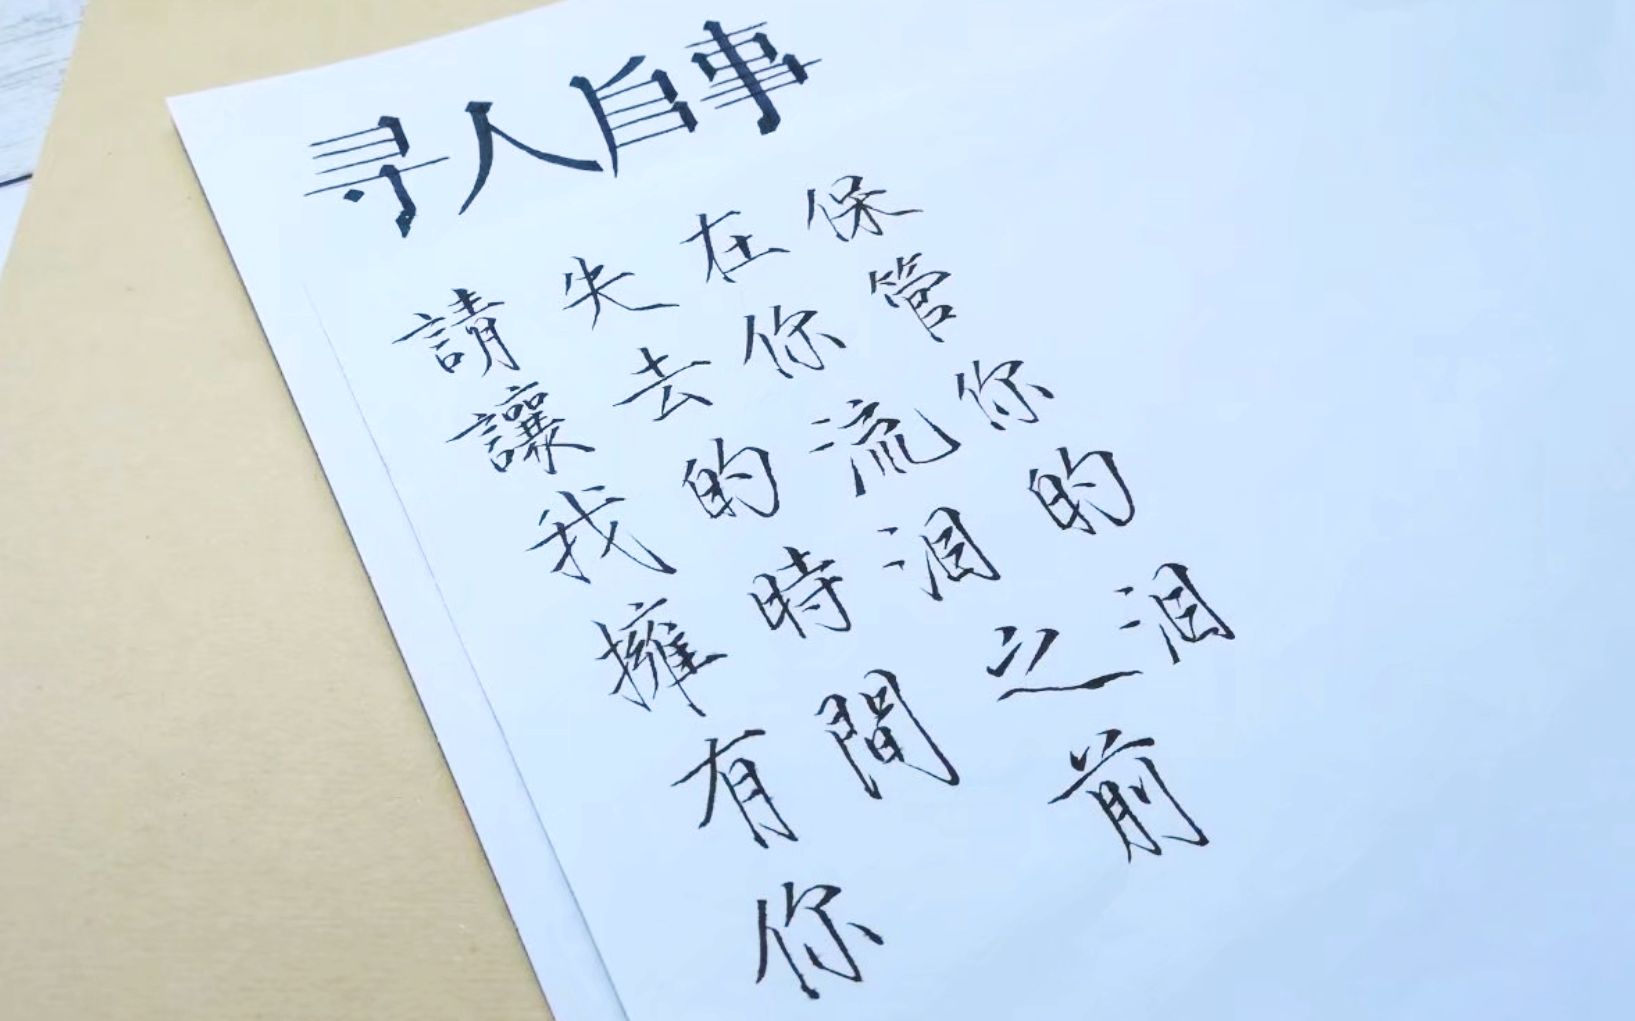 寻人启事
請讓我擁有你
失去的時間
在你流泪之前
保管你的泪